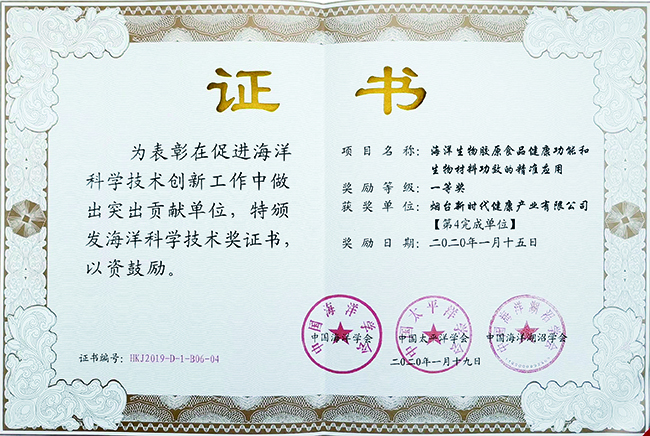 证书
为表彰在促进海洋
科学技术创新工作中做
出突出贡献单位，特颁
发海洋科学技术奖证书，
以资鼓励。
证书编号：HKJ2019-D-1-B06-04
项目名称：海洋生物胶原食品健康功能和
生物材料功效的精准应用
奖励等级：一等奖
获奖单位：烟台新时代健康产业有限公司
【第4完成单位】
奖励日期：二〇二〇年一月十五日
中国海洋学会
中国太平洋学会
中国海洋湖沼学会
中国海洋学会 中国太平洋学会 中国海洋湖沼学会
二〇二〇年一月十九日